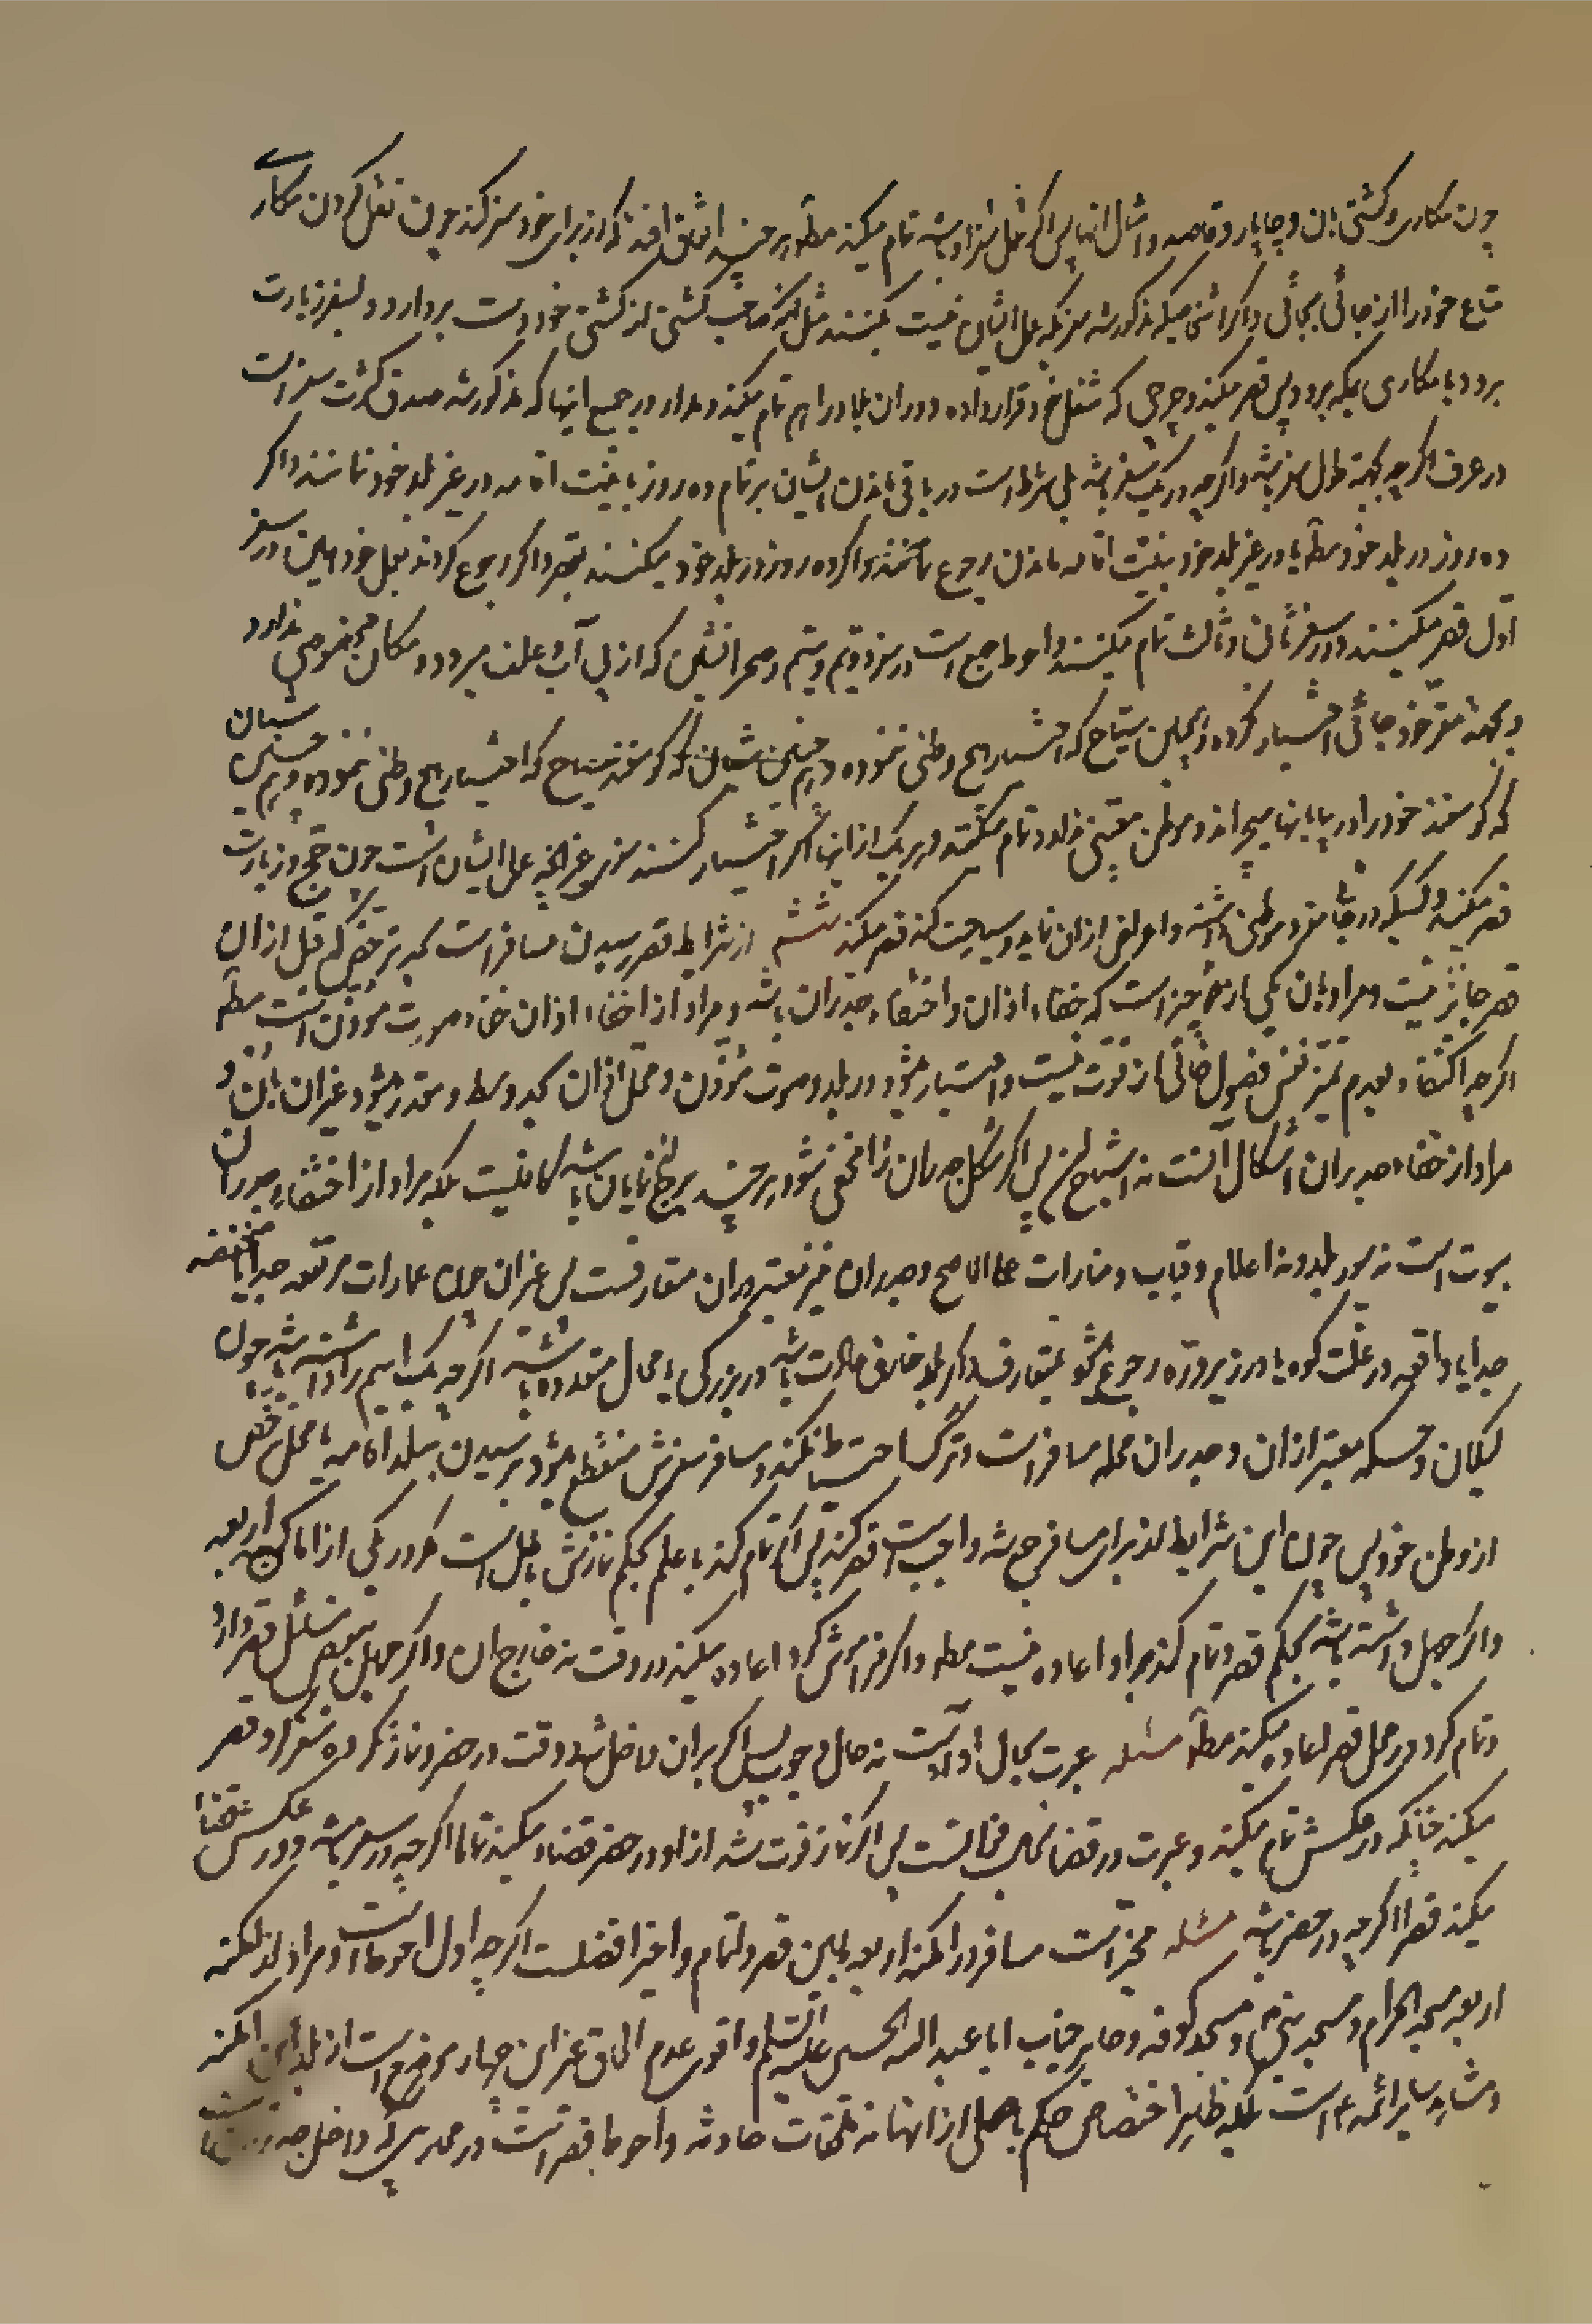 چون مکاری و کشتی بان و چاپار و قاصد و امثال انها پس اگر شغل سفر او باشد تمام میکند مطلقا هر چند اتفاق افتد که از برای خود سفر کند چون نقل کردن مکاری
متاع خود را از جائی بجائی و اگر اشخاصیکه مذکور شد سفریکه عمل ایشان نیست بکنند مثل انکه صاحب کشتی از کشتی خود دست بردارد و بسفر زیارت
برود یا مکاری بمکه برود پس قصر میکند و چرچی که شغل خود قرار داده دوران بلاد را هم تمام میکند و مدار در جمیع اینها که مذکور شد صدق کثرت سفر است
در عرف اگر چه بجهة طول سفر باشد و اگر چه در یک سفر باشد بلی شرط است در باقی ماندن ایشان بر تمام ده روز با نیت اقامه در غیر بلد خود نمانند و اگر
ده روز در بلد خود مطلقا یا در غیر بلد خود بنیت اقامه ماندن رجوع بقصر و اگر رجوع کردند بعمل خود همین در سفر
اول قصر میکنند و در سفر ثانی و ثالث تمام میکنند و احوط جمع است در سفر دویم و سیم و صحرا نشین که از پی آب و علف میرود و مکان مخصوصی ندارد
و بجهة مقر خود جائی اختیار نکرده و همچنین سیاح که اختیار هیچ وطنی ننموده و هم چنین شبان که گوسفند سیاح که اختیار هیچ وطنی ننموده و هم چنین شبان
که گوسفند خود را در بیابانها میچراند و موطن معینی ندارد تمام میکنند و هر یک از اینها اگر اختیار کنند سفری غیر انچه عمل ایشان است چون حج و زیارت
قصر میکنند و کسیکه در جائی مقر و موطن داشته و اعراض از ان نماید و سیاحت کند قصر میکند ششم از شرایط قصر رسیدن مسافر است بحد ترخص که قبل از ان
قصر جائز نیست و مراد بان یکی از دو چیز است که خفاء اذان و اختفاء جدران باشد و مراد از اخفاء اذان خفاء صوت مؤذن است مطلقا
اگر چه اکتفاء بعدم تمیز نفس فصول خالی از قوت نیست و اعتبار میشود در بلد و صوت مؤذن و محل اذان بحد وسط و مقدر میشود غیر ان بان و
مراد از خفاء جدران اشکال آنست نه اشباح ان پس اگر شکل جدران مخفی شود هر چند شبح نمایان باشد کافیست بلکه مراد از اختفاء جدران
بیوت است نه سور بلد و نه اعلام و قباب و منارات علی الاصح و جدران نیز معتبر در ان متعارفست پس غیر ان چون عمارات مرتفعه جدا یا منخفضه
جدا یا واقعه در غلت کوه یا در زیر دره رجوع میشود بمتعارف و اگر بلد خارق عادت باشد در بزرگی یا محال متعدده باشد اگر چه یک اسم را داشته باشد چون
گیلان و معتبر اذان و جدران محله مسافر است و ترک احتیاط نکند و مسافر سفرش منقطع میشود برسیدن ببلد اقامه یا محل ترخص
از وطن خود پس چون این شرایط از برای مسافر جمع شد واجب است قصر کند پس اگر تمام کند با علم بحکم نمازش باطل است مگر در یکی از اماکن اربعه
و اگر جهل داشته باشد بحکم قصر و تمام کند بر او اعاده نیست مطلقا و اگر فراموش کرد اعاده میکند در وقت نه خارج ان و اگر جهل ببعض مسائل قصر دارد
و تمام کرد در محل قصر اعاده میکند مطلقا مسئله عبرت بحال ادا است نه حال وجوب پس اگر بر ان داخل شد وقت در حضر و نماز نکرده سفر کرد قصر
میکند چنانکه در عکسش تمام میکند و عبرت در قضا بحال فواتست پس اگر نماز فوت شد از او در حضر قضاء میکند تماما اگر چه در سفر باشد و در عکس قضا
میکند قصرا اگر چه در حضر باشد مسئله مخیر است مسافر در امکنه اربعه مابین قصر و اتمام و اخیر افضلست اگر چه اول احوط است و مراد از امکنه
اربعه مسجد الحرام و مسجد نبی ص و مسجد کوفه و حایر جناب ابا عبد الله الحسین علیه السلم و اقوی عدم الحاق غیر این چهار موضع است از بلد این امکنه
و مشاهد سایر ائمه ع است بلکه ظاهر اختصاص حکم باصلی از انها نه ملحقات حادثه و احوط قصر است در